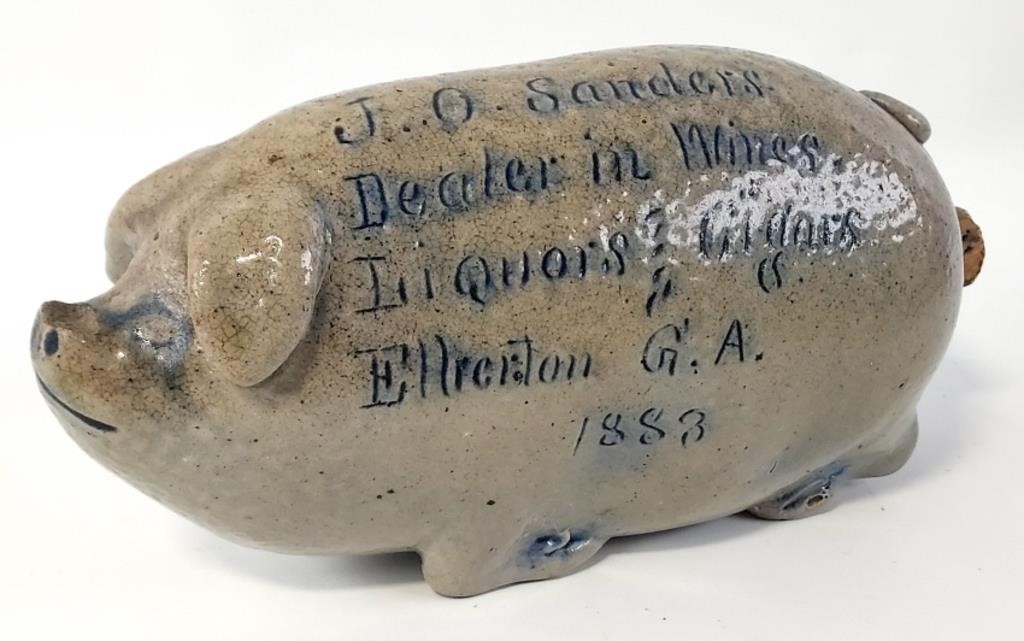 J. O. Sanders.
Dealer in Wines
Liquors & Cigars
&.
Elberton G. A.
1883